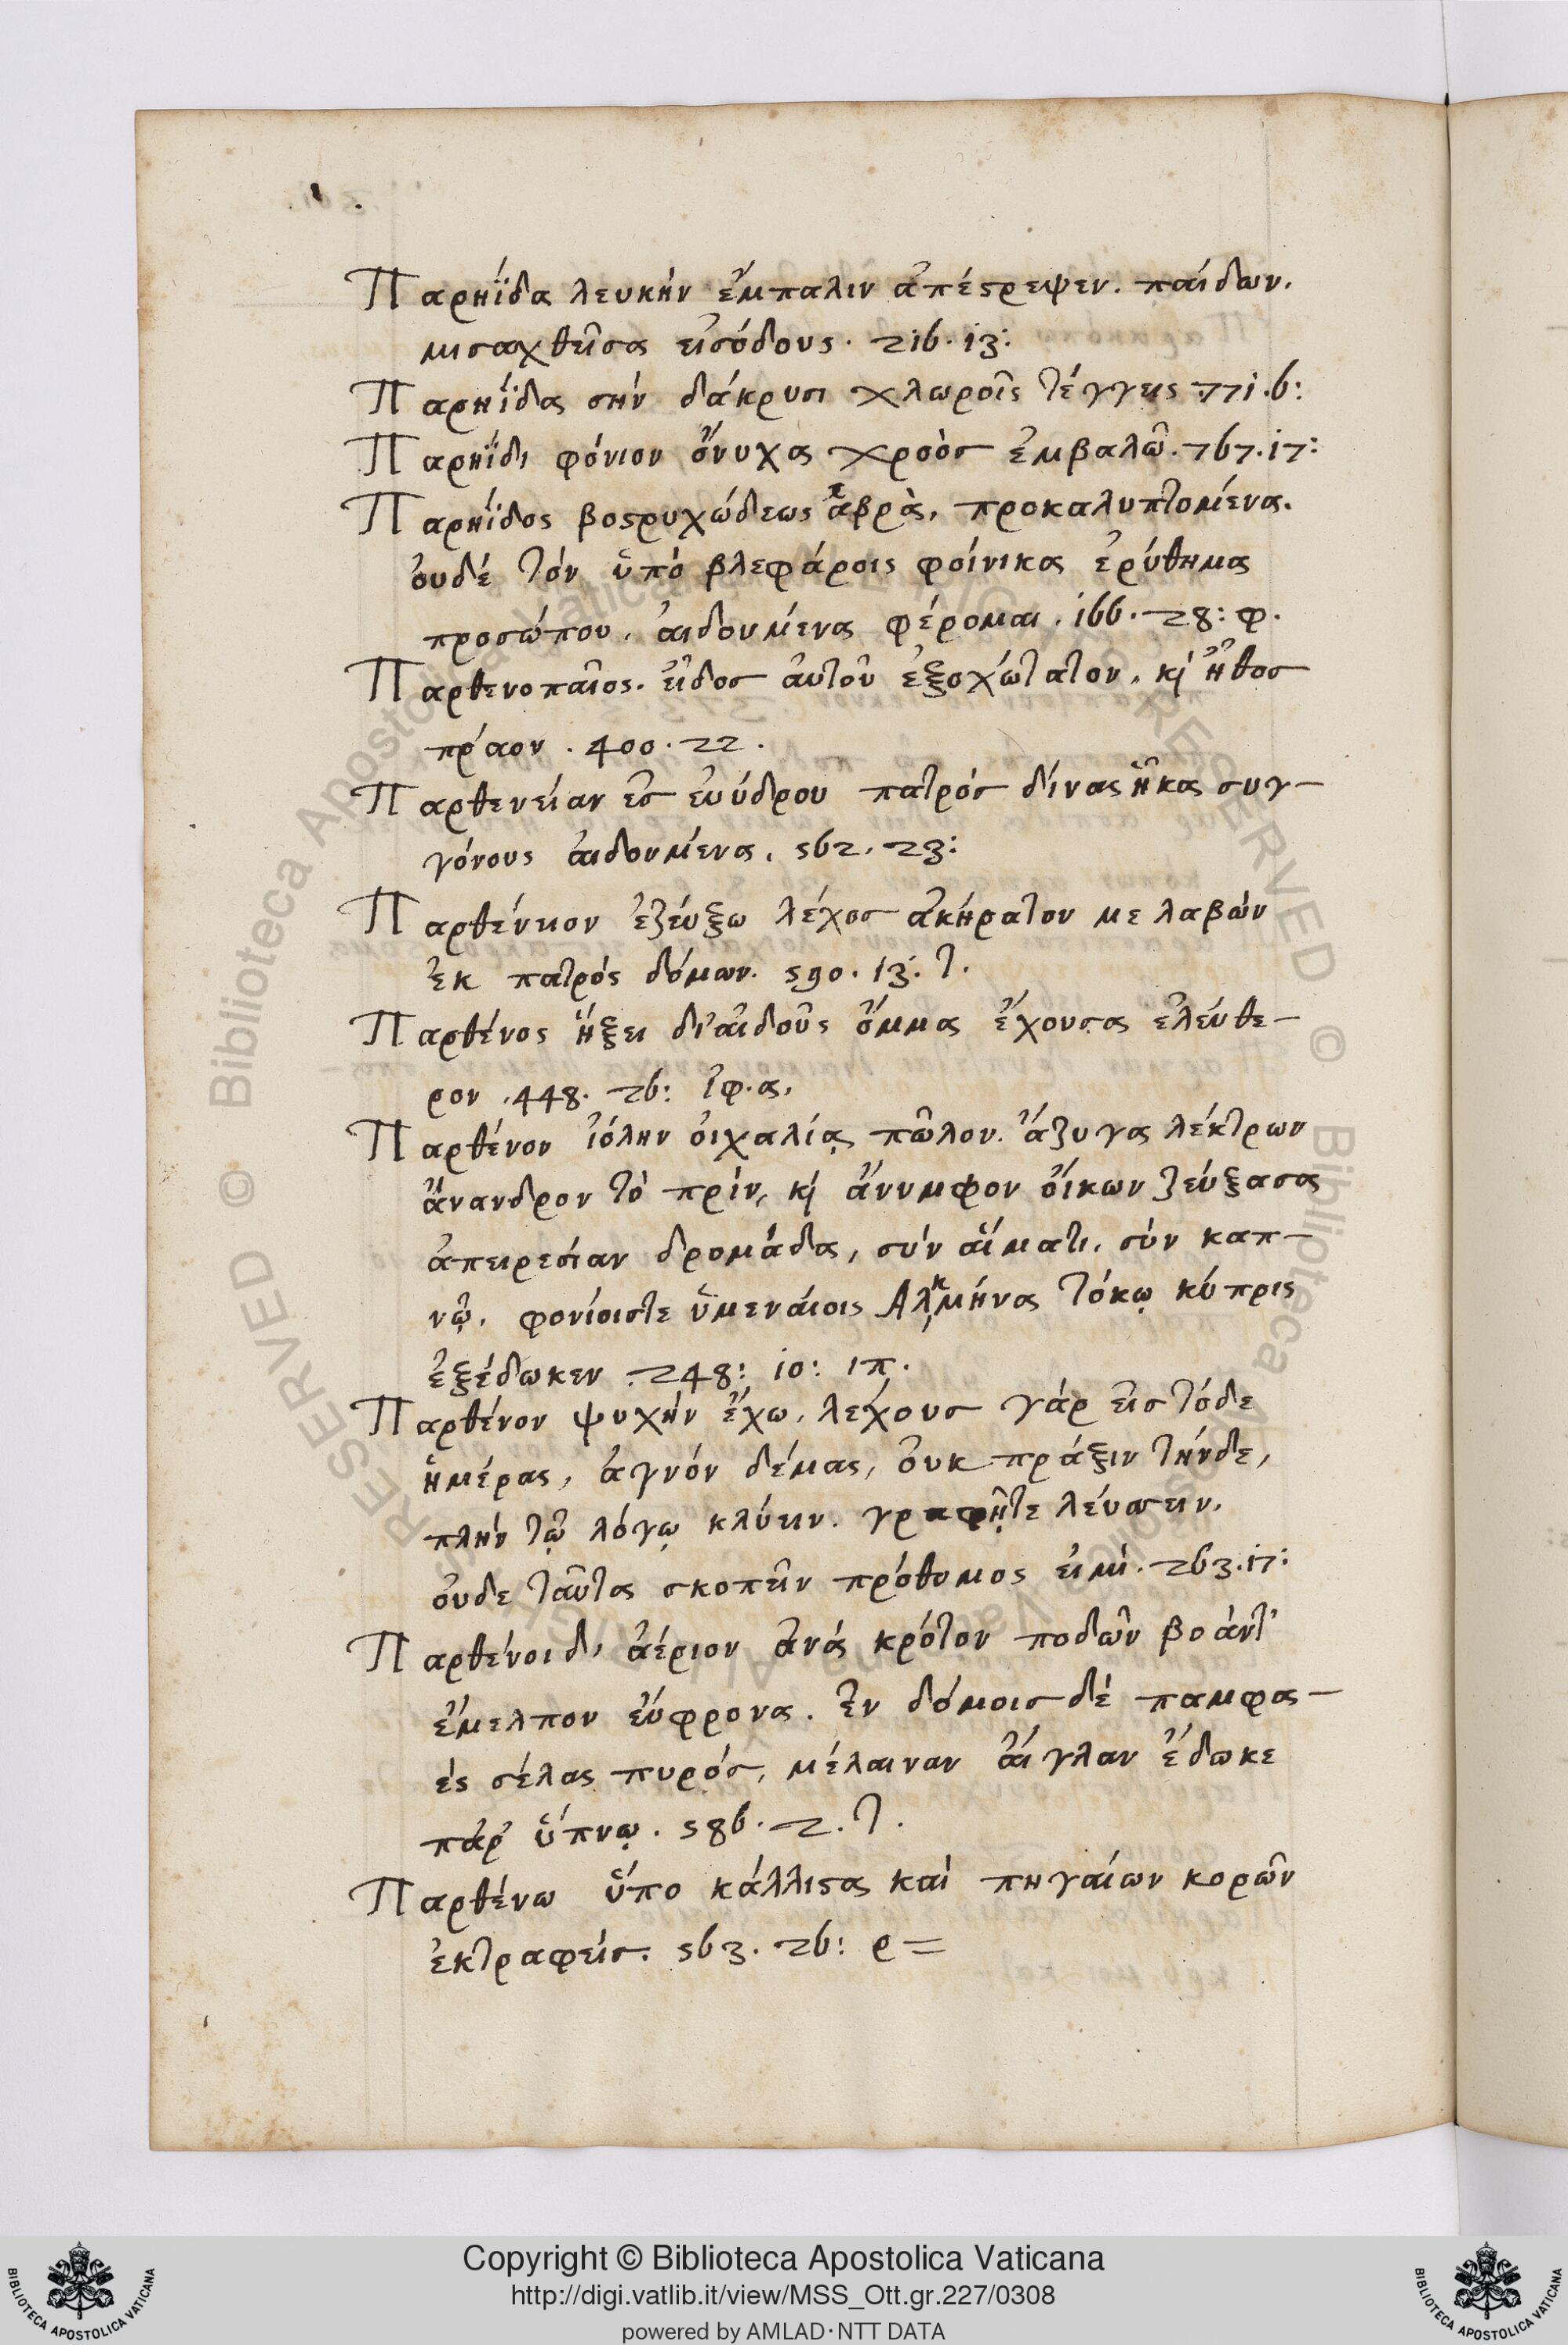 Παρηΐδα λευκὴν ἔμπαλιν ἀπέϛρεψεν. παίδων.
μισαχθεῖσα εἰσόδους. 216. 13:
Παρηΐδα σὴν δάκρυσι χλωροῖς τέγγεις 771. 6:
Παρηΐδι φόνιον ὄνυχα χροὸσ ἐμβαλῶ. 767. 17:
Παρηΐδος βοϛρυχώδεως ἁβρὰ, προκαλυπτομένα.
ὀυδέ τόν ὑπό βλεφάροις φοίνικα ἐρύθημα
προσώπου, ἀιδουμένα φέρομαι. 166. 28: φ.
Παρθενοπαῖος. εἶδοσ ἀυτοῦ ἐξοχώτατον, κὶ ἦθοσ
πρᾴον . 400. 22.
Παρθενείαν ἐσ ἐυύδρου πατρόσ δίνας ἧκα συγ-
γόνους ἀιδουμένα. 562. 23:
Παρθένειον ἐζεύξω λέχοσ ἀκήρατον με λαβὼν
ἐκ πατρὸς δόμων. 590. 13: τ.
Παρθένος ἥξει δι' ἀιδοῦς ὄμμα ἔχουσα ἐλεύθε-
ρον . 448. 26: ἰφ. α.
Παρθένον ἰόλην ὀιχαλίᾳ πῶλον. ἄζυγα λέκτρων
ἄνανδρον τὸ πρὶν, κὶ ἄνυμφον ὄικων ζεύξασα
ἀπειρεσίαν δρομάδα, σύν αἵματι. σύν καπ-
νῷ. φονίοιστε ὑμεναίοις Αλκμήνας τόκῳ κύπρις
ἐξέδωκεν . 248: 10: ιπ.
Παρθένον ψυχὴν ἔχω. λέχουσ γάρ εἰσ τόδε
ἡμέρας, ἁγνόν δέμας, ὀυκ πράξιν τήνδε,
πλήν τῷ λόγῳ κλύειν. γραφῇτε λέυσσειν.
ὀυδε ταῦτα σκοπεῖν πρόθυμος εἰμὶ. 263. 17:
Παρθένοι δ' ἀέριον ἀνὰ κρότον ποδῶν βοάντ'
ἔμελπον ἔυφρονα. Ἐν δόμοισ δέ παμφα-
ές σέλας πυρόσ, μέλαιναν ἄιγλαν ἔδωκε
παρ' ὕπνῳ. 586. 2. τ.
Παρθένω ὕπο κάλλιϛα καὶ πηγαίων κορῶν
ἐκτραφείσ. 563. 26: ρ=
Copyright © Biblioteca Apostolica Vaticana
http://digi.vatlib.it/view/MSS_Ott.gr.227/0308
powered by AMLAD·NTT DATA